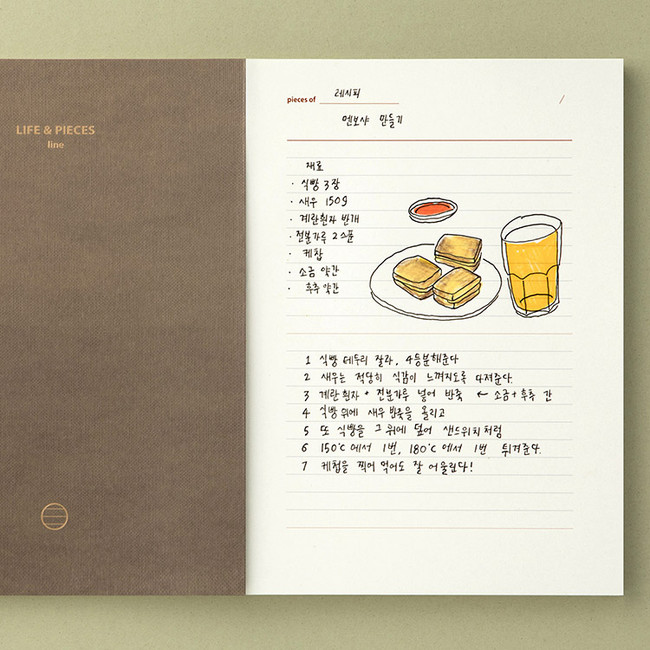 LIFE & PIECES
line
pieces of 레시피
/
멘보샤 만들기
재료
· 식빵 3장
· 새우 150g
· 계란흰자 반개
· 전분가루 2스푼
· 케찹
· 소금 약간
· 후추 약간
1 식빵 테두리 잘라, 4등분해준다
2 새우는 적당히 식감이 느껴지도록 다져준다.
3 계란흰자 + 전분가루 넣어 반죽 ← 소금+후추 간
4 식빵위에 새우반죽을 올리고
5 또 식빵을 그 위에 덮어 샌드위치처럼
6 150℃에서 1번, 180℃에서 1번 튀겨준다.
7 케첩을 찍어 먹어도 잘 어울린다!